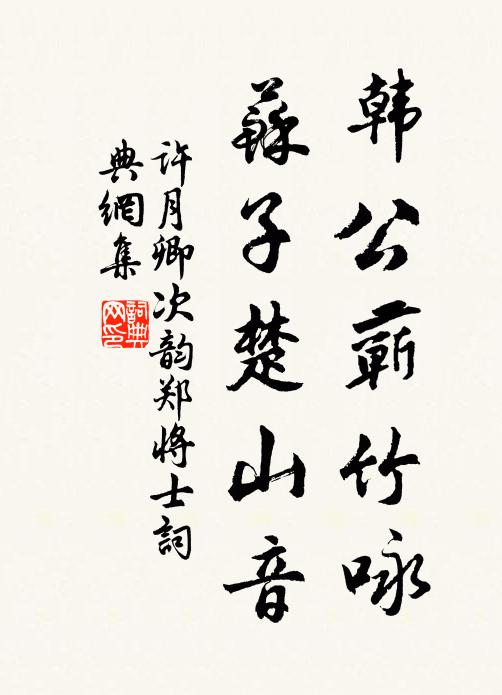 韩公蕲竹咏
蘇子楚山音
许月卿次韵郑将士詞
典網集
詞典
网印